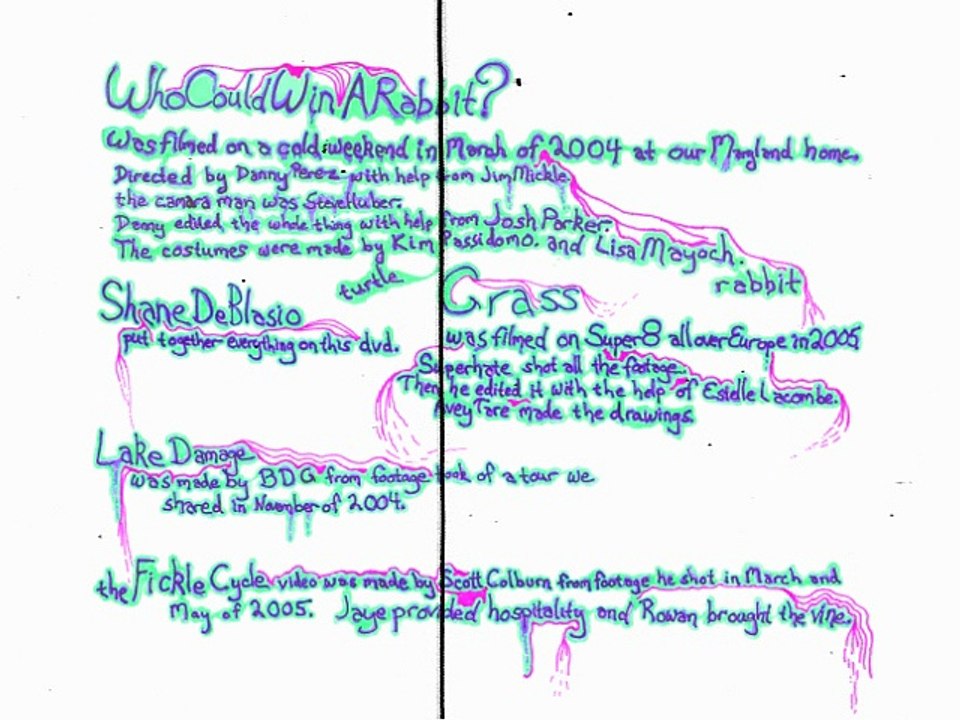 Who Could Win A Rabbit?
Was filmed on a cold weekend in March of 2004 at our Maryland home.
Directed by Danny Perez with help from Jim Mickle.
the camara man was Steve Huber.
Danny edited the whole thing with help from Josh Parker.
The costumes were made by Kim Passidomo. and Lisa Mayoch.
turtle rabbit
Shane DeBlasio
put together everything on this dvd.
Grass
was filmed on Super8 all over Europe in 2005
Superhate shot all the footage.
Then he edited it with the help of Estelle Lacombe.
Avey Tare made the drawings.
Lake Damage
was made by BDG from footage took of a tour we
shared in November of 2004.
the Fickle Cycle video was made by Scott Colburn from footage he shot in March and
May of 2005. Jaye provided hospitality and Rowan brought the vine.